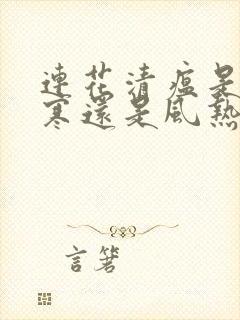 連花清瘟是
寒還是風熱
言箸